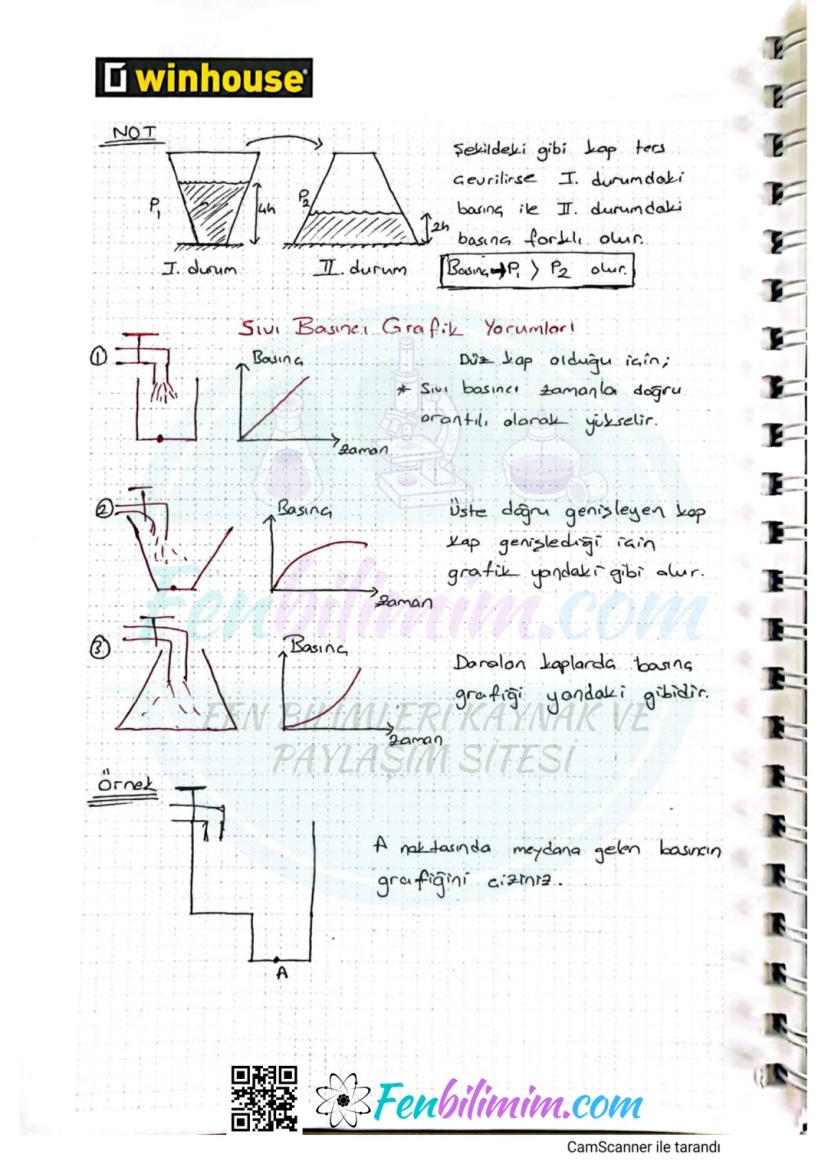 winhouse
NOT
Şekildeki gibi kap ters
çevrilirse I. durumdaki
basınç ile II. durumdaki
basınç farklı olur.
Basınç → P1 > P2 olur.
P1
4h
P2
2h
I. durum
II. durum
Sıvı Basıncı Grafik Yorumları
1
Basınç
zaman
Düz kap olduğu için;
* Sıvı basıncı zamanla doğru
orantılı olarak yükselir.
2
Basınç
zaman
Üste doğru genişleyen kap
kap genişlediği için
grafik yandaki gibi olur.
3
Basınç
zaman
Daralan kaplarda basınç
grafiği yandaki gibidir.
Fenbilimim.com
FEN BİLİMLERİ KAYNAK VE
PAYLAŞIM SİTESİ
Örnek
A noktasında meydana gelen basıncın
grafiğini çiziniz.
A
Fenbilimim.com
CamScanner ile tarandı